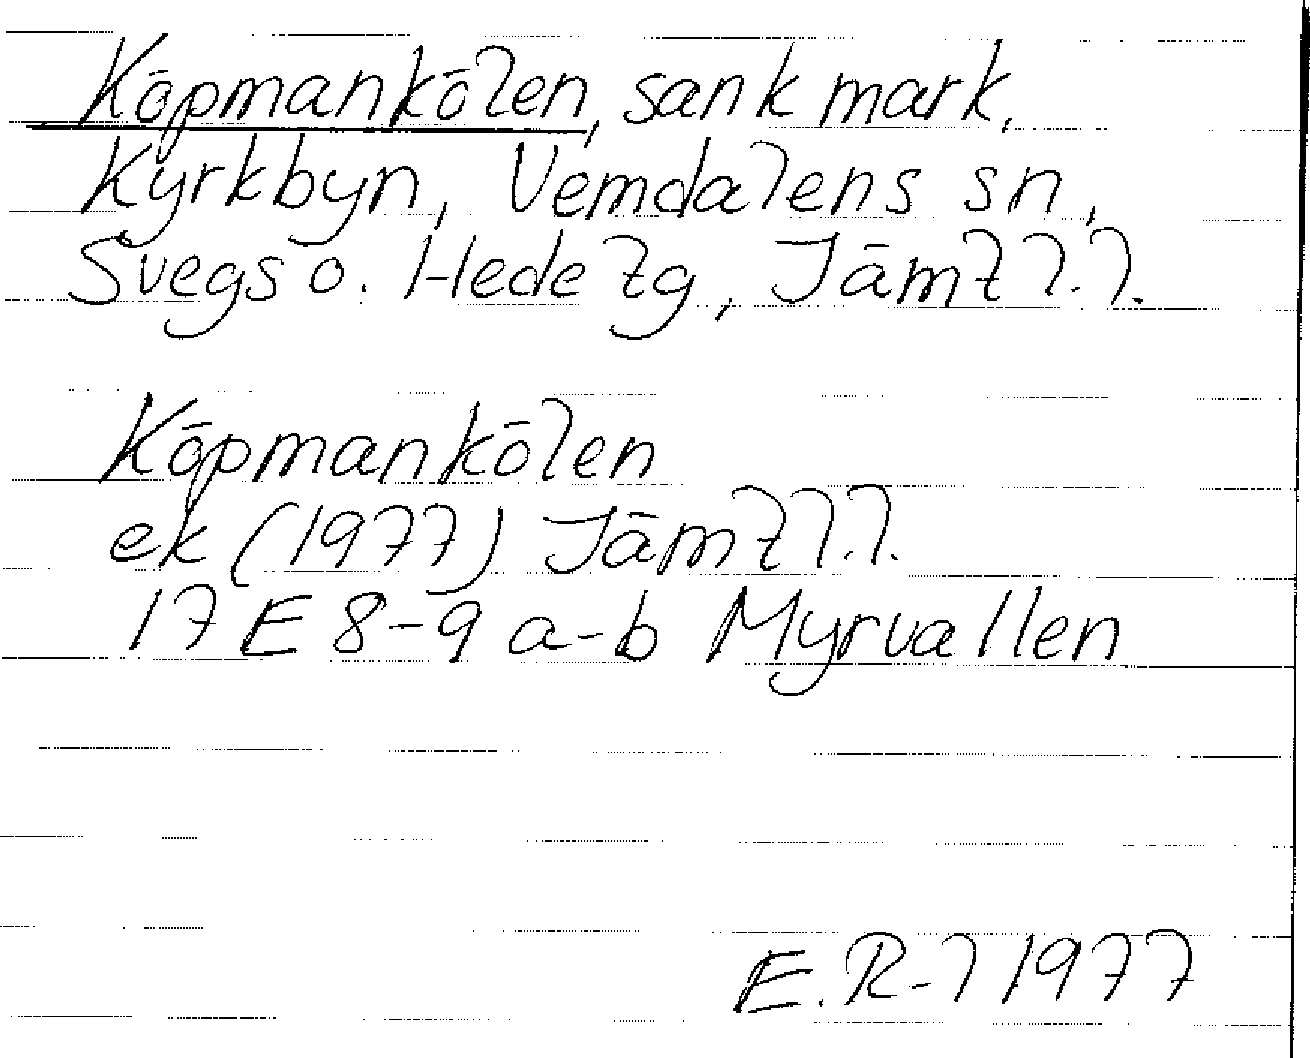 Köpmankölen, sank mark,
Kyrkbyn, Vemdalens sn,
Svegs o. Hede tg, Jämtl.l.
Köpmankölen
ek (1977) Jämtl.l.
17 E 8-9 a-b Myrvallen
E. R-l 1977